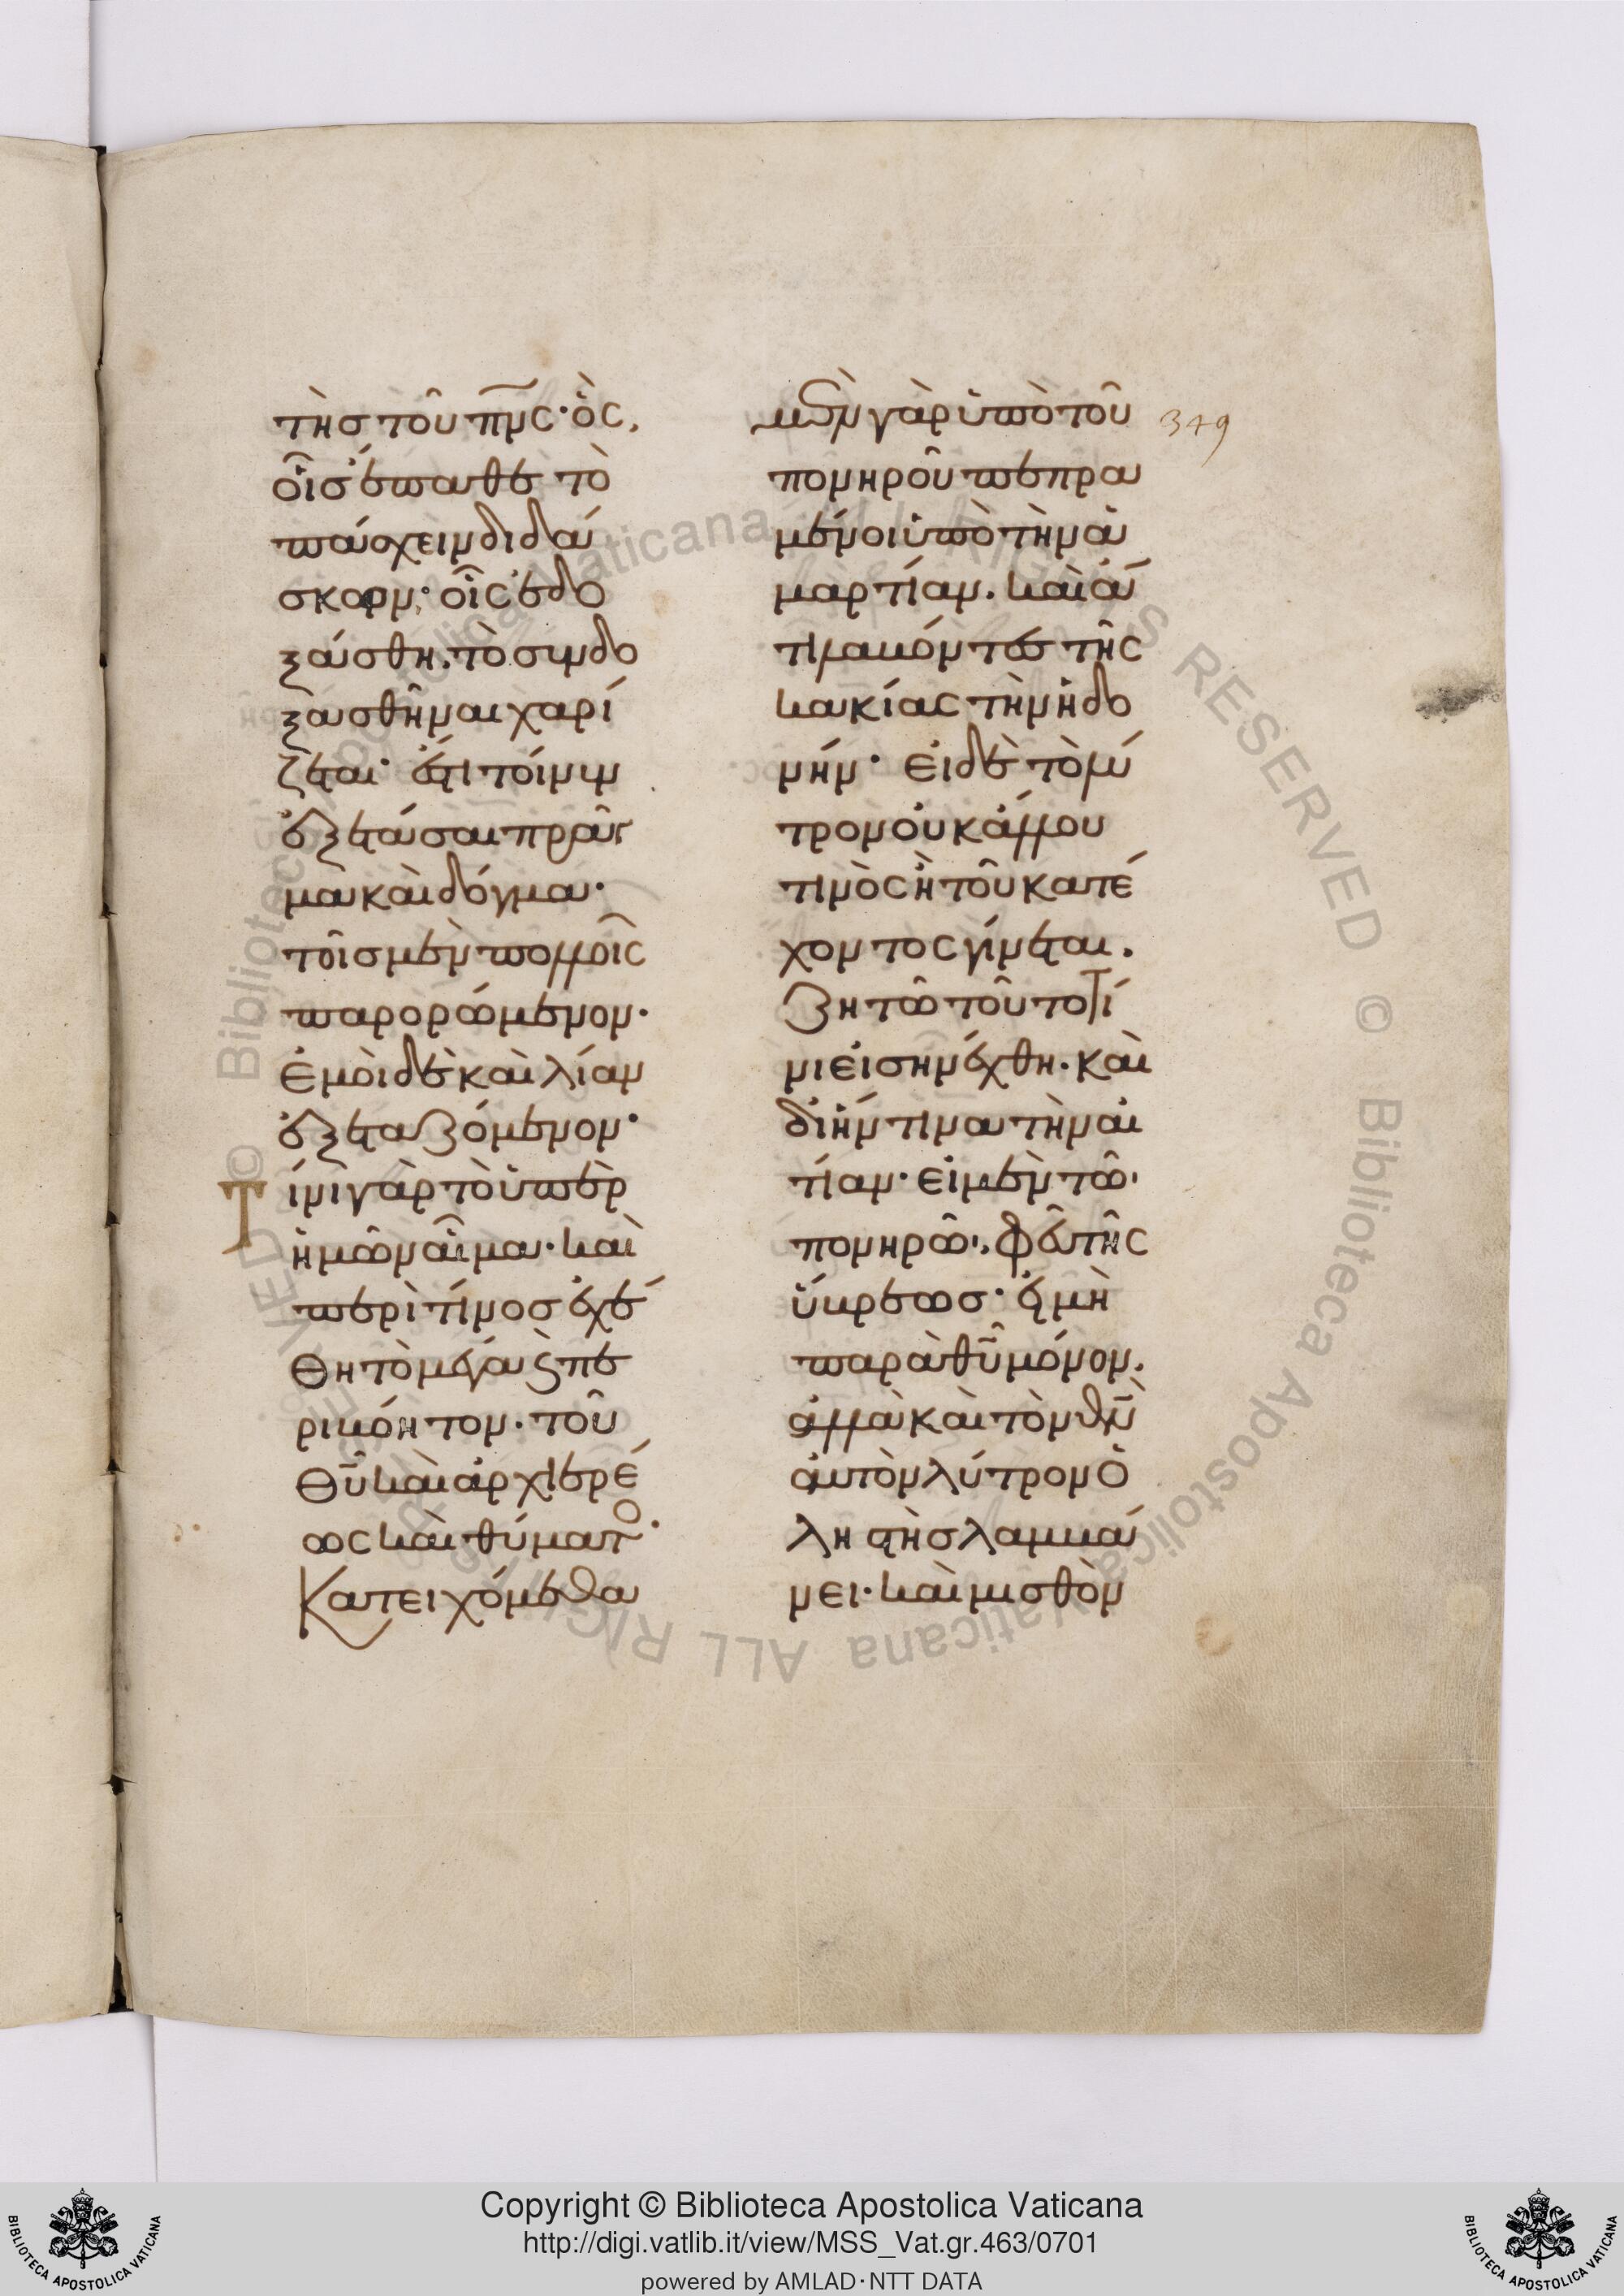 τὴσ τοῦ πν̅ς· ὃς,
οἷσ ἔπαθε τὸ
πάσχειν διδά
σκων· οἷς ἐδο
ξάσθη. τὸ συνδο
ξασθῆναι χαρί
ζεται· ἔτι τοίνυν
ἐξετάσαι πρᾶγ
μα καὶ δόγμα·
τοῖσ μὲν πολλοῖς
παρορώμενον·
ἐμοὶ δὲ καὶ λίαν
ἐξεταζόμενον·
Τίνι γὰρ τὸ ὑπὲρ
ἡμῶν αἷμα· καὶ
περὶ τίνοσ ἐχέ
θη τὸ μέγα ϛ πε
ριβόητον. τοῦ
θῦ καὶ ἀρχιερέ
ως καὶ θύματο·
Κατειχόμεθα
μὲν γὰρ ὑπὸ τοῦ
πονηροῦ πεπρα
μένοι ὑπὸ τὴν ἁ
μαρτίαν. καὶ ἀν
τιλαβόντεσ τῆς
κακίας τὴν ἡδο
νήν· εἰ δὲ τὸ λύ
τρον οὐκ ἄλλου
τινὸς ἢ τοῦ κατέ
χοντος γίνεται.
ζητῶ τοῦτο τί
νι εἰσηνέχθη. καὶ
δι ἥντινα τὴν αἰ
τίαν· εἰ μὲν τῶι
πονηρῶι, φεῦ τῆς
ὕβρεωσ· εἰ μὴ
παρὰ θῦ μόνον.
ἀλλὰ καὶ τὸν θν̅
αὐτὸν λύτρον ὁ
ληστὴσ λαμβά
νει· καὶ μισθὸν
349
Copyright © Biblioteca Apostolica Vaticana
http://digi.vatlib.it/view/MSS_Vat.gr.463/0701
powered by AMLAD·NTT DATA
BIBLIOTECA APOSTOLICA VATICANA
BIBLIOTECA APOSTOLICA VATICANA
© Biblioteca Apostolica Vaticana ALL RIGHTS RESERVED © Biblioteca Apostolica Vaticana ALL RIGHTS RESERVED